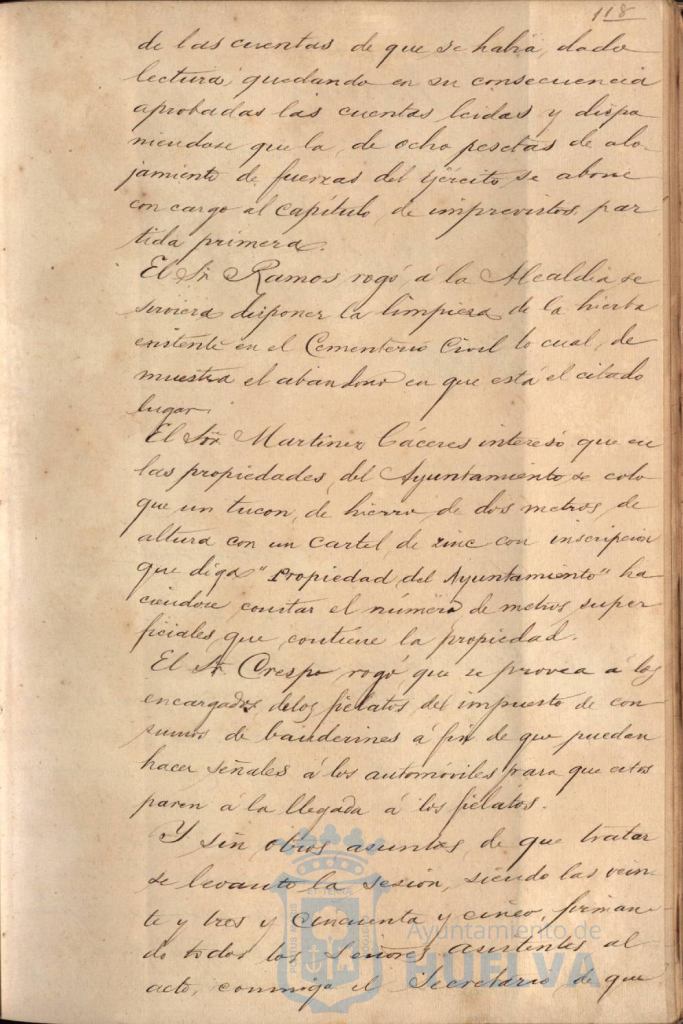 118
de las cuentas de que se había dado
lectura, quedando en su consecuencia
aprobadas las cuentas leidas y dispo
niendose que la de ocho pesetas de alo-
jamiento de fuerzas del Ejército, se abone
con cargo al capítulo de imprevistos, par
tida primera.
El Sr. Ramos rogó á la Alcaldia se
serviera disponer la limpieza de la hierba
existente en el Cementerio Civil lo cual, de
muestra el abandono en que está el citado
lugar.
El Sor. Martinez Cáceres interesó que en
las propiedades del Ayuntamiento se colo
que un tucon de hierro de dos metros de
altura con un cartel de zinc con inscripcion
que diga "Propiedad del Ayuntamiento" ha
ciendose constar el número de metros super
ficiales que contiene la propiedad.
El Sr. Crespo rogó que se provea á los
encargados delos fielatos del impuesto de con
sumos de banderines á fin de que puedan
hacer señales á los automóviles para que estos
paren á la llegada á los fielatos.
Y sin otros asuntos de que tratar
se levantó la sesión, siendo las vein
te y tres y cincuenta y cinco, firman-
do todos los Señores asistentes al
acto, conmigo el Secretario de que
Ayuntamiento de
HUELVA